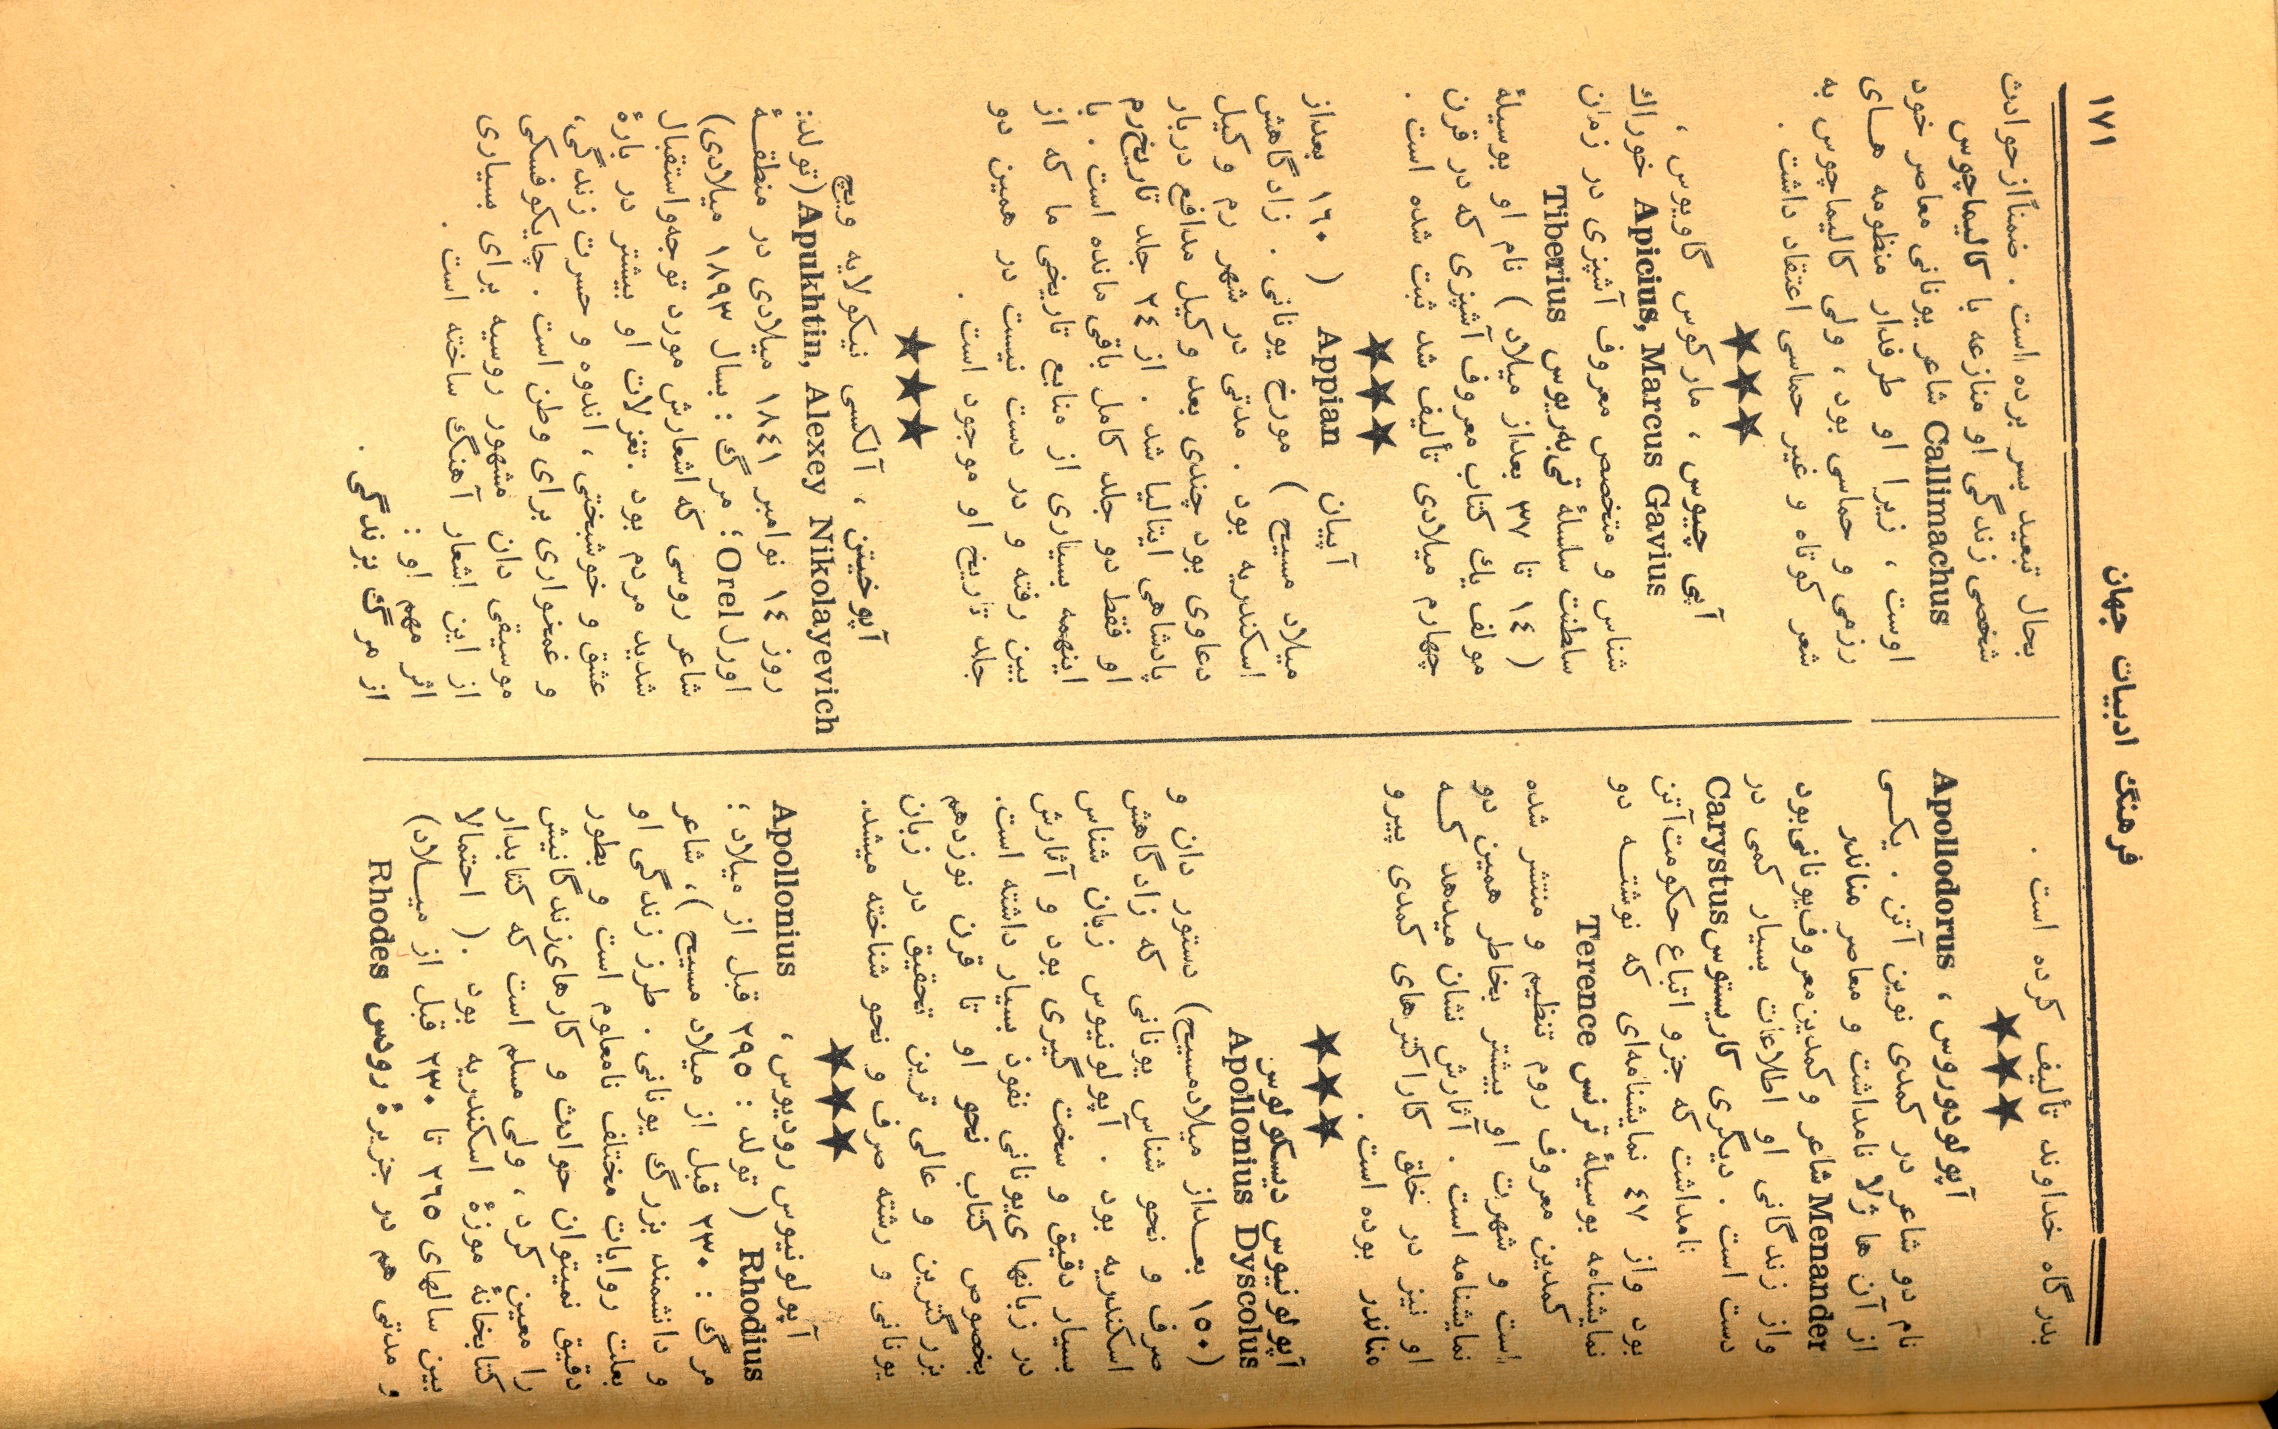 ۱۷۱
فرهنگ ادبیات جهان
بدرگاه خداوند تألیف کرده است .
★★★
آپولودوروس ، Apollodorus
نام دو شاعر در کمدی نوین آتن . یکی
از آن ها ژلا نامداشت و معاصر مناندر
Menander شاعر و کمدین معروف یونانی بود
و از زندگانی او اطلاعات بسیار کمی در
دست است . دیگری کاریستوس Carystus
نامداشت که جزو اتباع حکومت آتن
بود و از ٤٧ نمایشنامه‌ای که نوشته دو
نمایشنامه بوسیلهٔ ترنس Terence
کمدین معروف روم تنظیم و منتشر شده
است و شهرت او بیشتر بخاطر همین دو
نمایشنامه است . آثارش نشان میدهد که
او نیز در خلق کاراکترهای کمدی پیرو
مناندر بوده است .
★★★
آپولونیوس دیسکولوس
Apollonius Dyscolus
(۱٥۰ بعداز میلادمسیح) دستور دان و
صرف و نحو شناس یونانی که زادگاهش
اسکندریه بود . آپولونیوس زبان شناس
بسیار دقیق و سخت گیری بود و آثارش
در زبانها ی‌یونانی نفوذ بسیار داشته است.
بخصوص کتاب نحو او تا قرن نوزدهم
بزرگترین و عالی ترین تحقیق در زبان
یونانی و رشته صرف و نحو شناخته میشد.
★★★
آپولونیوس رودیوس ، Apollonius
Rhodius ( تولد : ۲۹٥ قبل از میلاد ؛
مرگ : ۲۳۰ قبل از میلاد مسیح ) ، شاعر
و دانشمند بزرگ یونانی . طرز زندگی او
بعلت روایات مختلف نامعلوم است و بطور
دقیق نمیتوان حوادث و کارهای‌زندگانیش
را معین کرد ، ولی مسلم است که کتابدار
کتابخانهٔ موزهٔ اسکندریه بود .( احتمالا
بین سالهای ۲٦٥ تا ۲۳۰ قبل از میلاد)
و مدتی هم در جزیرهٔ رودس Rhodes
بحال تبعید بسر برده است . ضمناًازحوادث
شخصی زندگی او منازعه با کالیماچوس
Callimachus شاعر یونانی معاصر خود
اوست ، زیرا او طرفدار منظومه های
رزمی و حماسی بود ، ولی کالیماچوس به
شعر کوتاه و غیر حماسی اعتقاد داشت .
★★★
آپی چیوس ، مارکوس گاویوس ،
Apicius, Marcus Gavius خوراك
شناس و متخصص معروف آشپزی در زمان
سلطنت سلسلهٔ تی‌به‌ریوس Tiberius
( ۱٤ تا ۳۷ بعداز میلاد ) نام او بوسیلهٔ
مولف یك کتاب معروف آشپزی که در قرن
چهارم میلادی تألیف شد ثبت شده است .
★★★
آپیان Appian ( ۱٦۰ بعداز
میلاد مسیح ) مورخ یونانی . زادگاهش
اسکندریه بود . مدتی در شهر رم وکیل
دعاوی بود چندی بعد وکیل مدافع دربار
پادشاهی ایتالیا شد . از ۲٤ جلد تاریخ‌رم
او فقط دو جلد کامل باقی مانده است . با
اینهمه بسیاری از منابع تاریخی ما که از
بین رفته و در دست نیست در همین دو
جلد تاریخ او موجود است .
★★★
آپوخیتن ، آلکسی نیکولایه ویچ
Apukhtin, Alexey Nikolayevich (تولد:
روز ۱٤ نوامبر ۱۸٤۱ میلادی در منطقهٔ
اورل Orel؛ مرگ : بسال ۱۸۹۳ میلادی)
شاعر روسی که اشعارش مورد توجه‌واستقبال
شدید مردم بود .تغزلات او بیشتر در بارهٔ
عشق و خوشبختی ، اندوه و حسرت زندگی،
و غمخواری برای وطن است . چایکوفسکی
موسیقی دان مشهور روسیه برای بسیاری
از این اشعار آهنگ ساخته است .
اثر مهم او :
از مرگ بزندگی .